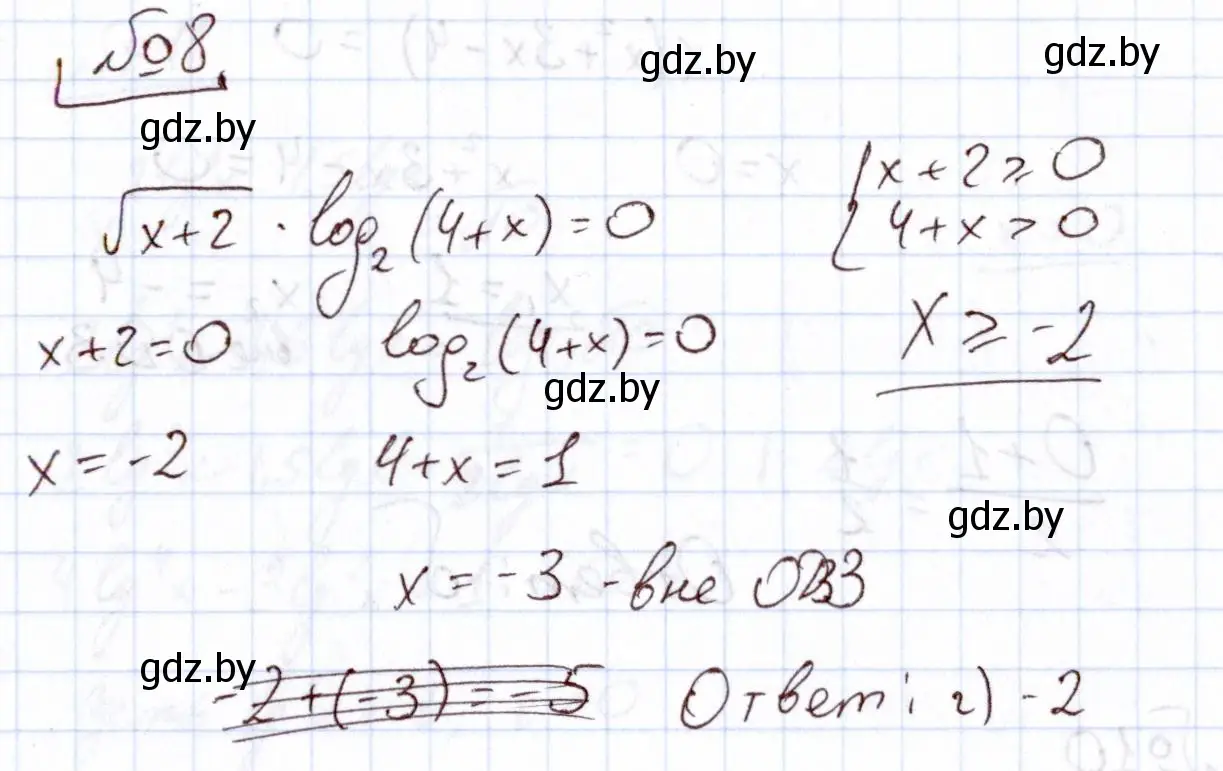 №8
gdz.by
gdz.by
gdz.by
√x+2 · log₂(4+x)=0
{ x+2≥0
4+x>0
x+2=0 log₂(4+x)=0
x≥-2
gdz.by
x=-2 4+x=1
gdz.by
x=-3 -вне ОДЗ
gdz.by
-2+(-3)=-5 Ответ: г) -2